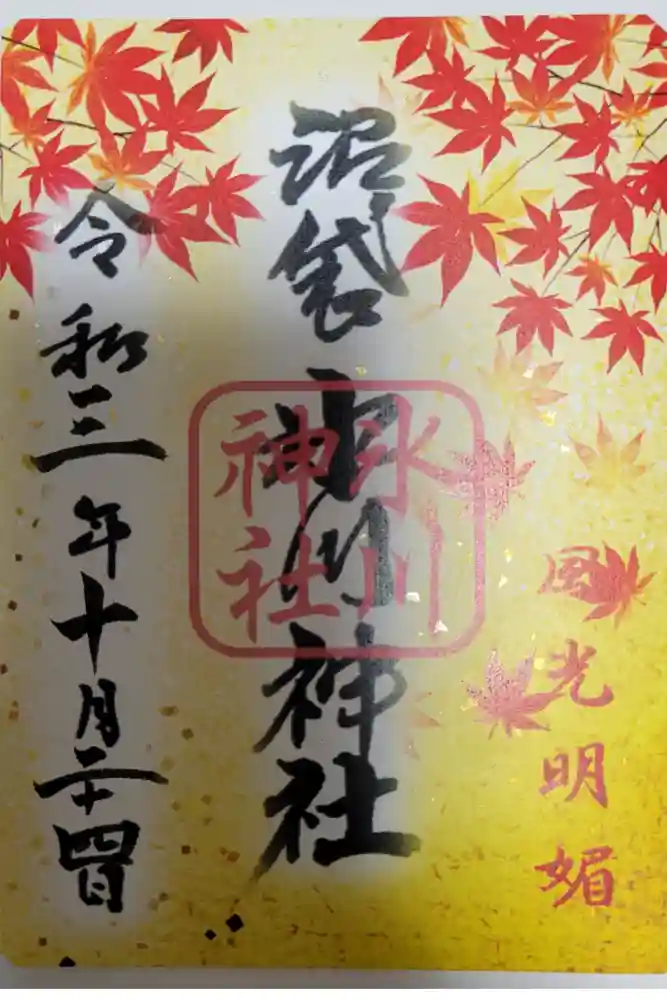 風光明媚
沼袋氷川神社
氷川
神社
令和三年十月二十四日